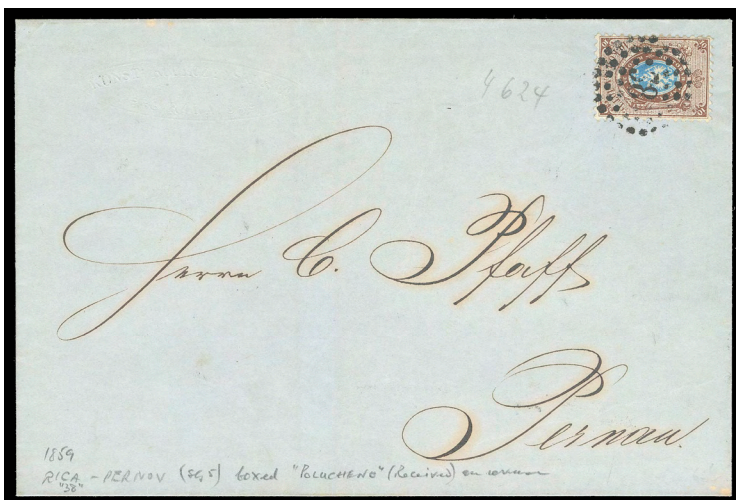 4624
Herrn C. Pfaff
Pernau.
1859
RIGA - PERNOV (SG 5) boxed "POLUCHENO" (Received) on reverse
"38"